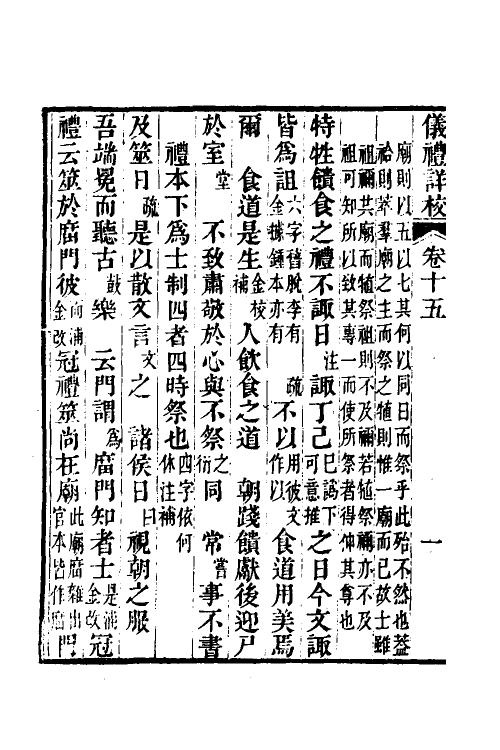 儀禮詳校 卷十五 一
廟則以五以七其何以同日而祭乎此殆不然也蓋
祫則萃羣廟之主而祭之犆則惟一廟而已故士雖
祖禰其廟而犆祭祖則不及禰若犆祭禰亦不及
祖可知所以致其專一而使所祭者得伸其尊也
特牲饋食之禮不諏日 注 諏丁己 巳譌下可意推 之日今文諏
皆爲詛 六字舊脫李有金據鍾本亦有 疏 不以 用彼文作以 食道用美焉
爾 食道是生 金校補 人飲食之道 朝踐饋獻後迎尸
於室 堂 不致肅敬於心與不祭 之衍 同 常 嘗 事不書
禮本下爲士制四者四時祭也 四字依何休注補
及筮日 疏 是以散文言 文 之 諸侯日 曰 視朝之服
吾端冕而聽古 鼓 樂 云門謂 爲 廟門知者士 是浦金改 冠
禮云筮於庿門彼 向浦金改 冠禮筮尚在廟 此廟庿雜出官本皆作庿 門